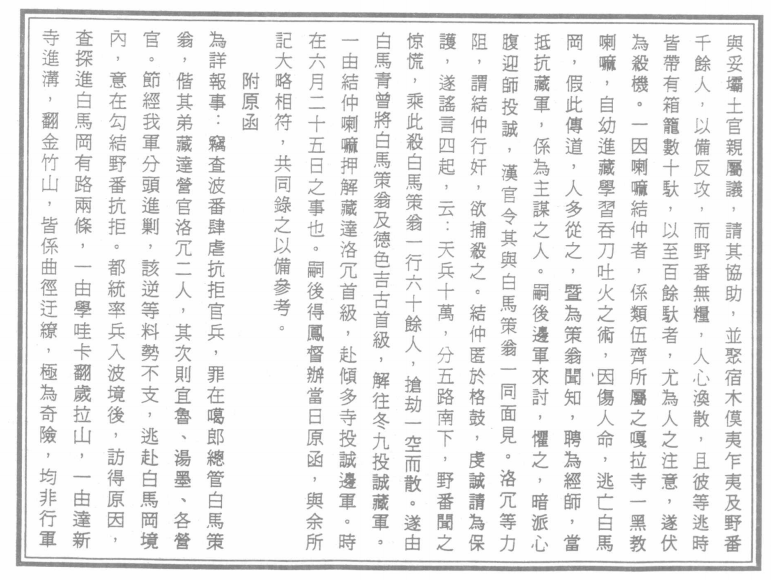 與妥壩土官親屬議，請其協助，並聚宿木傼夷乍夷及野番
千餘人，以備反攻，而野番無糧，人心渙散，且彼等逃時
皆帶有箱籠數十馱，以至百餘馱者，尤為人之注意，遂伏
為殺機。一因喇嘛結仲者，係類伍齊所屬之嘎拉寺一黑教
喇嘛，自幼進藏學習吞刀吐火之術，因傷人命，逃亡白馬
岡，假此傳道，人多從之，暨為策翁聞知，聘為經師，當
抵抗藏軍，係為主謀之人。嗣後邊軍來討，懼之，暗派心
腹迎師投誠，漢官令其與白馬策翁一同面見。洛冗等力
阻，謂結仲行奸，欲捕殺之。結仲匿於格鼓，虔誠請為保
護，遂謠言四起，云：天兵十萬，分五路南下，野番聞之
惊慌，乘此殺白馬策翁一行六十餘人，搶劫一空而散。遂由
白馬青曾將白馬策翁及德色吉古首級，解往冬九投誠藏軍。
一由結仲喇嘛押解藏達洛冗首級，赴傾多寺投誠邊軍。時
在六月二十五日之事也。嗣後得鳳督辦當日原函，與余所
記大略相符，共同錄之以備參考。
附原函
為詳報事：竊查波番肆虐抗拒官兵，罪在噶郎總管白馬策
翁，偕其弟藏達營官洛冗二人，其次則宜魯、湯墨、各營
官。節經我軍分頭進剿，該逆等料勢不支，逃赴白馬岡境
內，意在勾結野番抗拒。都統率兵入波境後，訪得原因，
查探進白馬岡有路兩條，一由學哇卡翻歲拉山，一由達新
寺進溝，翻金竹山，皆係曲徑迂繚，極為奇險，均非行軍